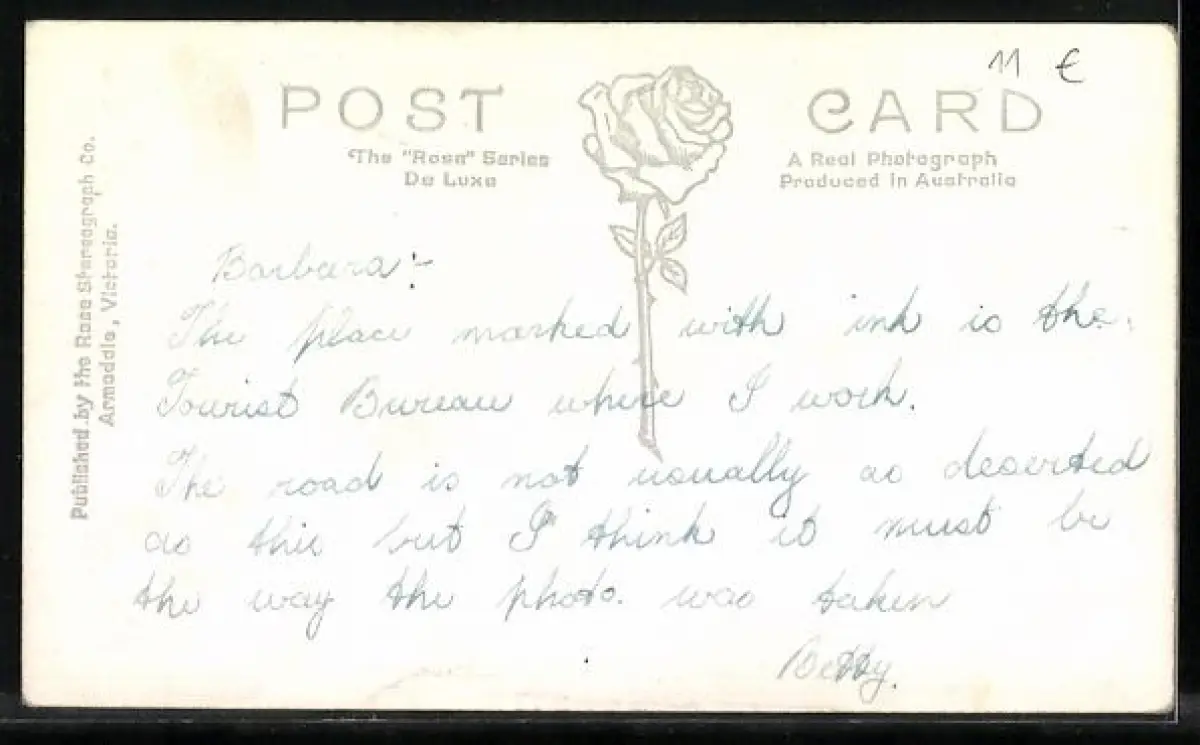 11 €
POST CARD
The "Rose" Series
De Luxe
A Real Photograph
Produced in Australia
Published by the Rose Stereograph Co.
Armadale, Victoria.
Barbara:-
The place marked with ink is the
Tourist Bureau where I work.
The road is not usually as deserted
as this but I think it must be
the way the photo. was taken
Betty.